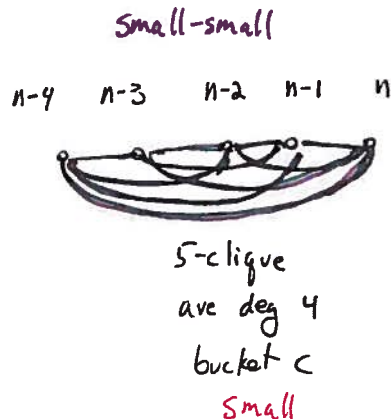 small-small
n-4 n-3 n-2 n-1 n
5-clique
ave deg 4
bucket C
small